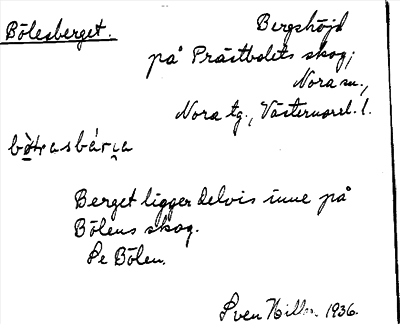 Bölesberget.
Bergshöjd
på Prästbolets skog;
Nora sn.,
Nora tg., Västernorrl. l.
Berget ligger delvis inne på
Bölens skog.
Se Bölen.
Sven 1936.